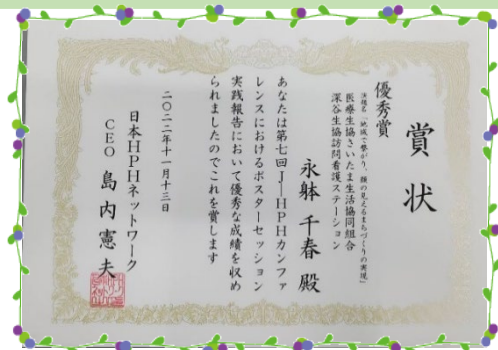 賞状
優秀賞
演題名「地域で繋がり、顔の見えるまちづくりの実現」
医療生協さいたま生活協同組合
深谷生協訪問看護ステーション
永躰 千春 殿
あなたは第七回J―HPHカンファ
レンスにおけるポスターセッション
実践報告において優秀な成績を収め
られましたのでこれを賞します
二〇二二年十一月十三日
日本HPHネットワーク
CEO 島内 憲夫